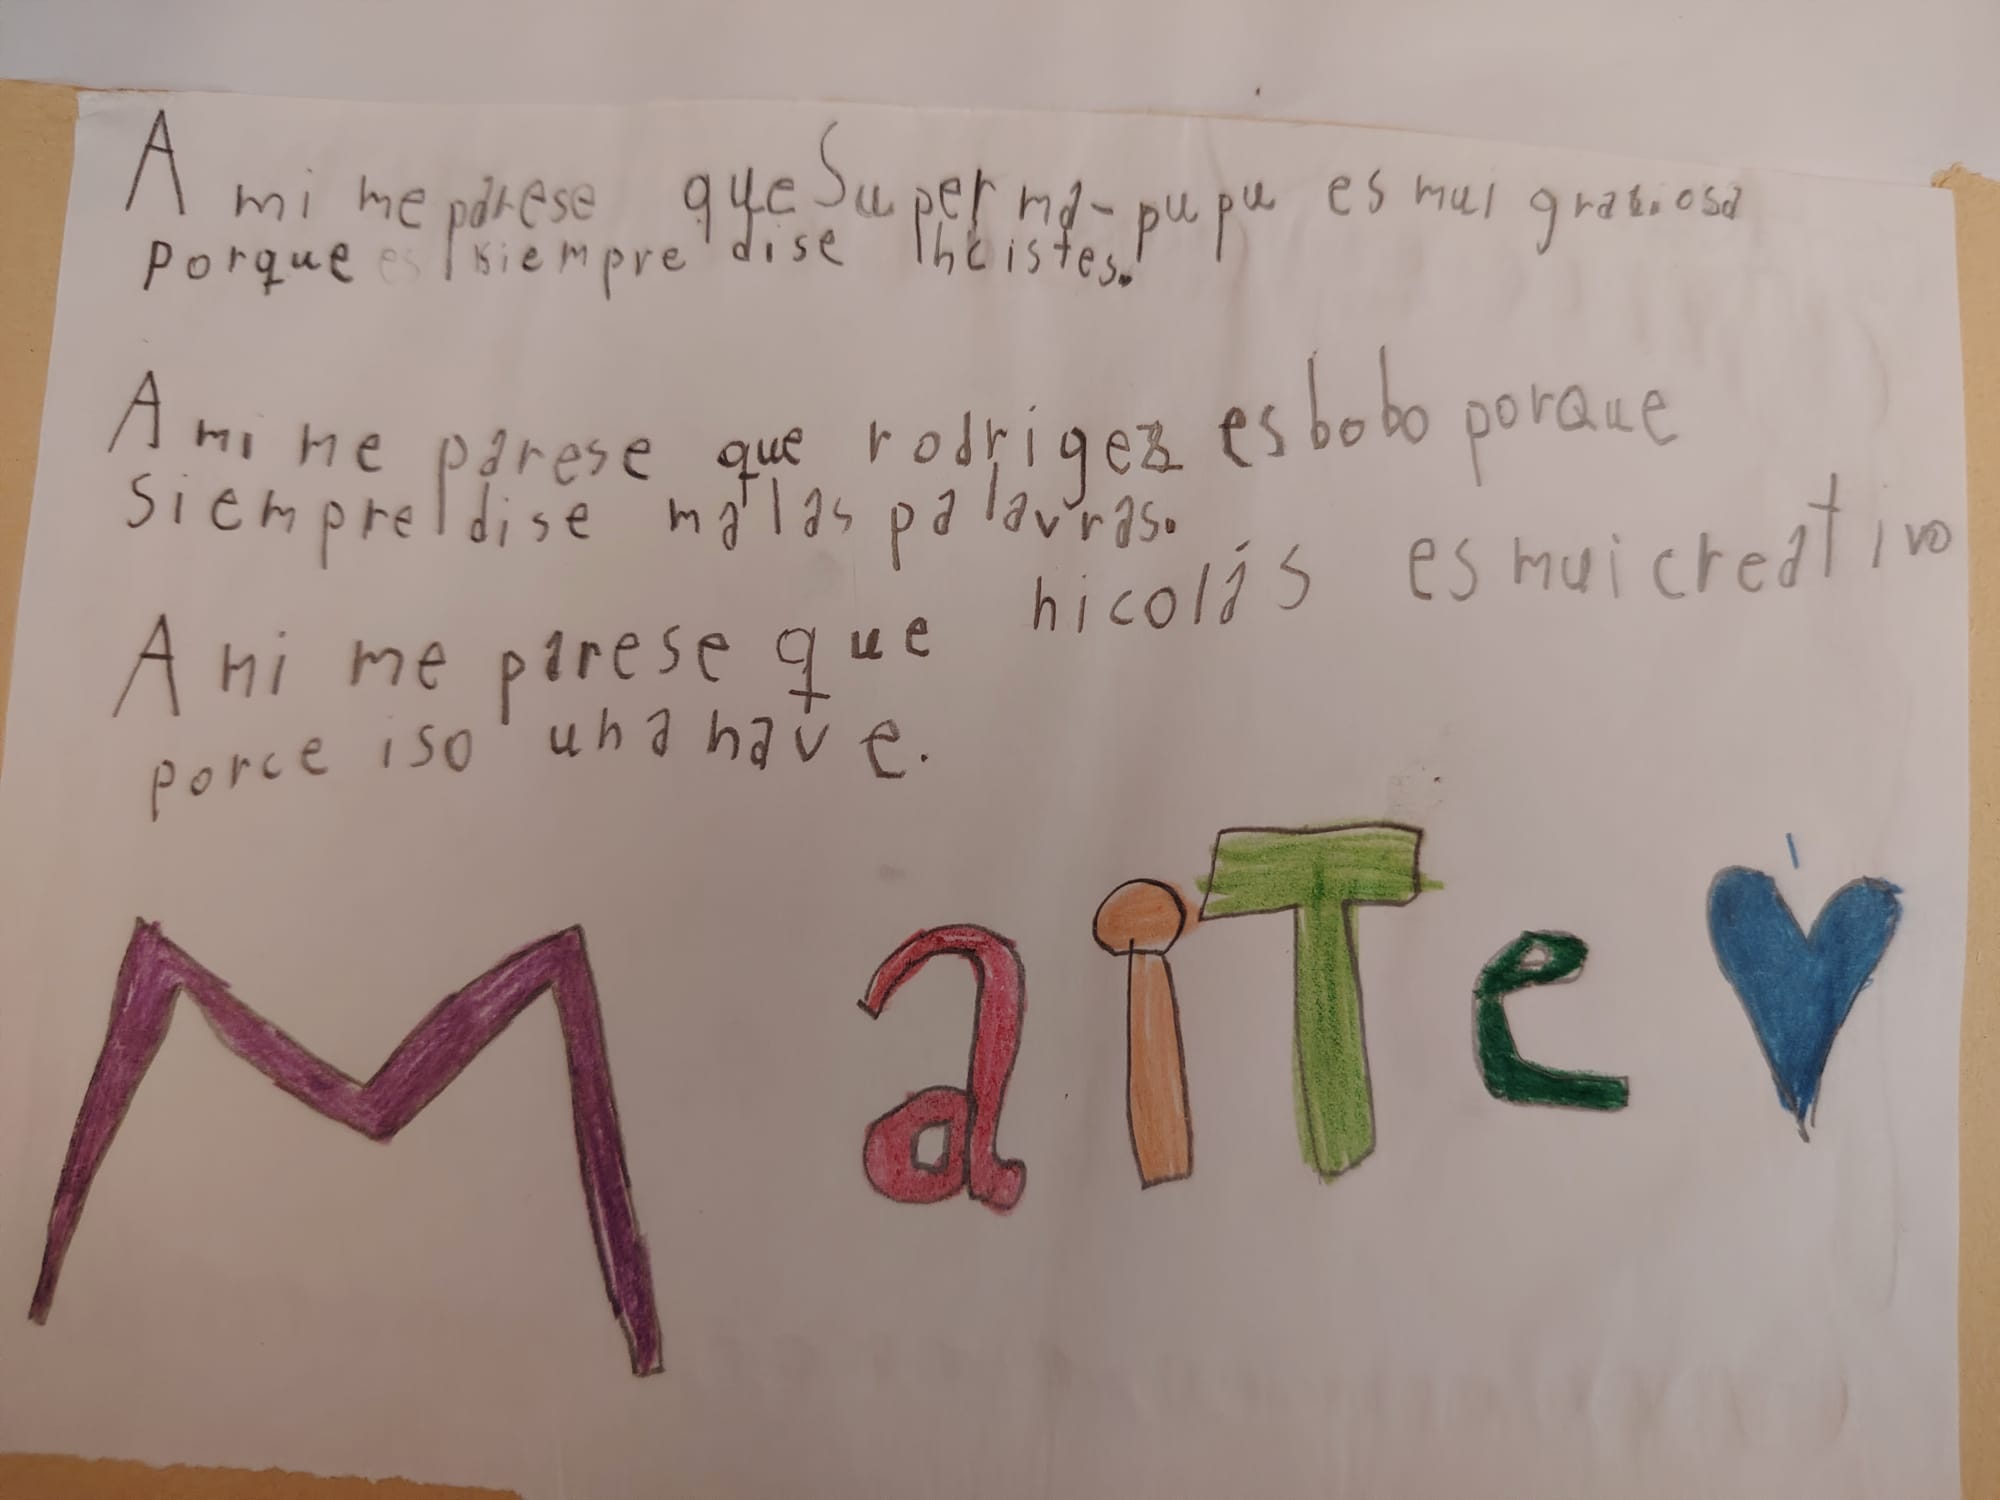 A mi me parese que Superma-pupu es mui grasiosa
Porque siempre dise hcistes.
A mi me parese que rodrigez es bobo porque
siempre dise malas palavras.
A mi me parese que nicolás es mui creativo
porce iso una nave.
MaiTe